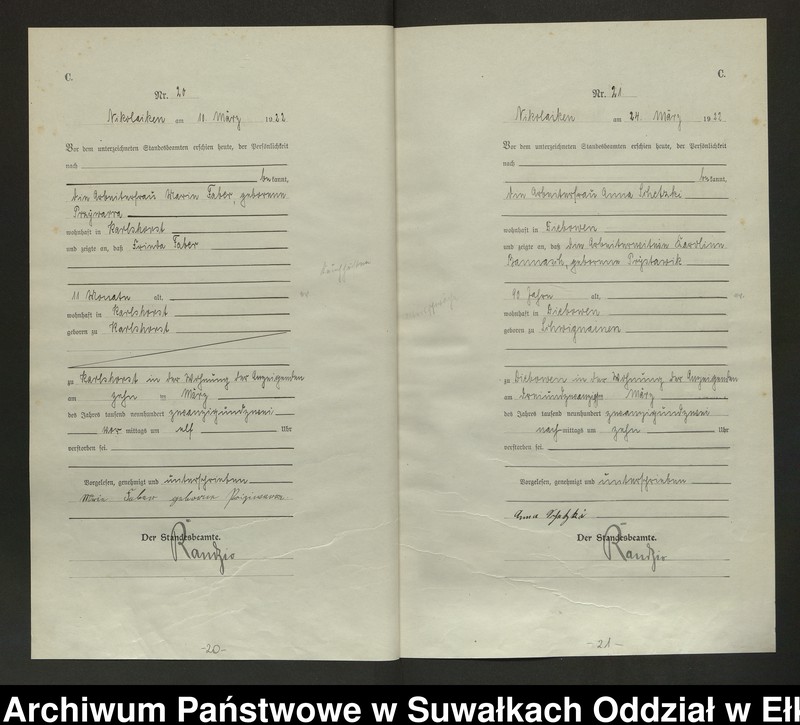 C.
Nr. 20
Nikolaiken am 11. März 1922
Vor dem unterzeichneten Standesbeamten erschien heute, der Persönlichkeit
nach
bekannt,
die Arbeiterfrau Marie Faber, geborene
wohnhaft in Karlshorst
und zeigte an, daß Frieda Faber
11 Monate alt,
wohnhaft in Karlshorst
geboren zu Karlshorst
zu Karlshorst in der Wohnung der Anzeigenden
am zehn ten März
des Jahres tausend neunhundert zwanzigundzwei
vor mittags um elf Uhr
verstorben sei.
Vorgelesen, genehmigt und unterschrieben
Marie Faber geborene
Der Standesbeamte.
Randzio
-20-
C.
Nr. 21
Nikolaiken am 24. März 1922
Vor dem unterzeichneten Standesbeamten erschien heute, der Persönlichkeit
nach
bekannt,
die Arbeiterfrau Anna Schetzki
wohnhaft in
und zeigte an, daß die Arbeiterwitwe Karoline
Bannasch, geborene
90 Jahre alt,
wohnhaft in
geboren zu Schwignainen
zu in der Wohnung der Anzeigenden
am dreiundzwanzigsten März
des Jahres tausend neunhundert zwanzigundzwei
nach mittags um zehn Uhr
verstorben sei.
Vorgelesen, genehmigt und unterschrieben
Anna Schetzki
Der Standesbeamte.
Randzio
-21-
Archiwum Państwowe w Suwałkach Oddział w Eł